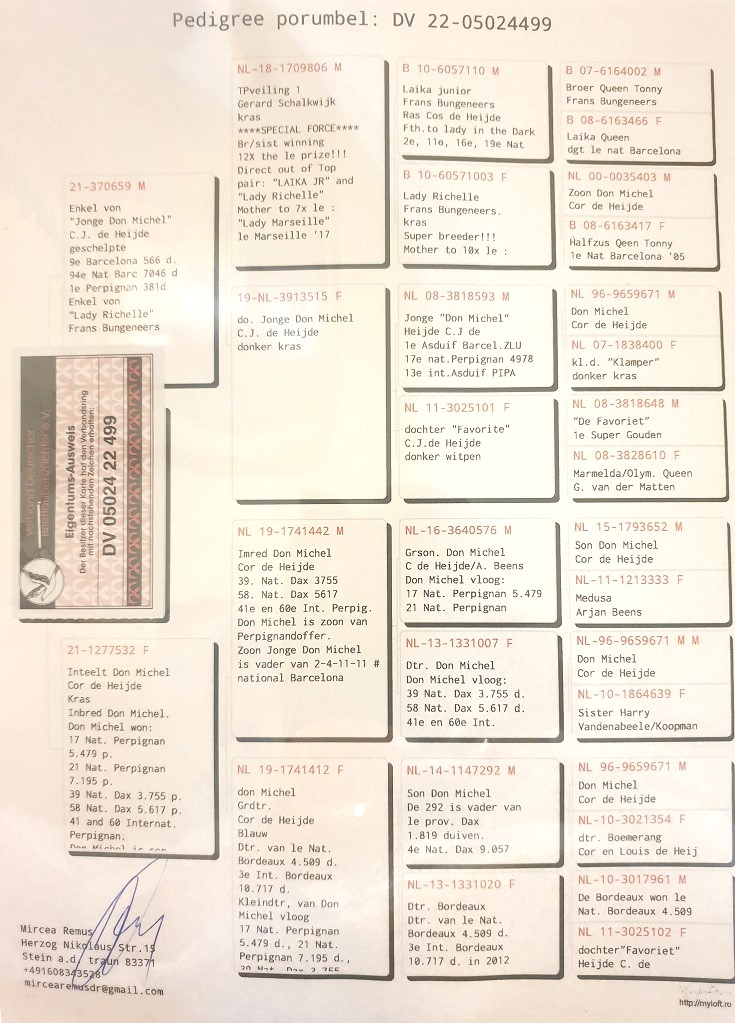 Pedigree porumbel: DV 22-05024499
21-370659 M
Enkel von
"Jonge Don Michel"
C.J. de Heijde
geschelpte
9e Barcelona 566 d.
94e Nat Barc 7046 d
1e Perpignan 381d
Enkel von
"Lady Richelle"
Frans Bungeneers
Verband Deutscher
Brieftaubenzüchter e.V.
Eigentums-Ausweis
Der Besitzer dieser Karte hat den Verbandsring
mit nachstehenden Zeichen erhalten:
DV 05024 22 499
21-1277532 F
Inteelt Don Michel
Cor de Heijde
Kras
Inbred Don Michel.
Don Michel won:
17 Nat. Perpignan
5.479 p.
21 Nat. Perpignan
7.195 p.
39 Nat. Dax 3.755 p.
58 Nat. Dax 5.617 p.
41 and 60 Internat.
Perpignan.
Don Michel is son
Mircea Remus
Herzog Nikolaus Str.15
Stein a.d. traun 83371
+491608343528
mircearemusdr@gmail.com
NL-18-1709806 M
TPveiling 1
Gerard Schalkwijk
kras
****SPECIAL FORCE****
Br/sist winning
12X the le prize!!!
Direct out of Top
pair: "LAIKA JR" and
"Lady Richelle"
Mother to 7x le :
"Lady Marseille"
le Marseille '17
19-NL-3913515 F
do. Jonge Don Michel
C.J. de Heijde
donker kras
NL 19-1741442 M
Imred Don Michel
Cor de Heijde
39. Nat. Dax 3755
58. Nat. Dax 5617
41e en 60e Int. Perpig.
Don Michel is zoon van
Perpignandoffer.
Zoon Jonge Don Michel
is vader van 2-4-11-11 #
national Barcelona
NL 19-1741412 F
don Michel
Grdtr.
Cor de Heijde
Blauw
Dtr. van le Nat.
Bordeaux 4.509 d.
3e Int. Bordeaux
10.717 d.
Kleindtr, van Don
Michel vloog
17 Nat. Perpignan
5.479 d., 21 Nat.
Perpignan 7.195 d.,
39 Nat. Dax 3.755
B 10-6057110 M
Laika junior
Frans Bungeneers
Ras Cos de Heijde
Fth.to lady in the Dark
2e, 11e, 16e, 19e Nat
B 10-60571003 F
Lady Richelle
Frans Bungeneers.
kras
Super breeder!!!
Mother to 10x le :
NL 08-3818593 M
Jonge "Don Michel"
Heijde C.J de
1e Asduif Barcel.ZLU
17e nat.Perpignan 4978
13e int.Asduif PIPA
NL 11-3025101 F
dochter "Favorite"
C.J.de Heijde
donker witpen
NL-16-3640576 M
Grson. Don Michel
C de Heijde/A. Beens
Don Michel vloog:
17 Nat Perpignan 5.479
21 Nat. Perpignan
NL-13-1331007 F
Dtr. Don Michel
Don Michel vloog:
39 Nat. Dax 3.755 d.
58 Nat. Dax 5.617 d.
41e en 60e Int.
NL-14-1147292 M
Son Don Michel
De 292 is vader van
le prov. Dax
1.819 duiven.
4e Nat. Dax 9.057
NL-13-1331020 F
Dtr. Bordeaux
Dtr. van le Nat.
Bordeaux 4.509 d.
3e Int. Bordeaux
10.717 d. in 2012
B 07-6164002 M
Broer Queen Tonny
Frans Bungeneers
B 08-6163466 F
Laika Queen
dgt le nat Barcelona
NL 00-0035403 M
Zoon Don Michel
Cor de Heijde
B 08-6163417 F
Halfzus Qeen Tonny
1e Nat Barcelona '05
NL 96-9659671 M
Don Michel
Cor de Heijde
NL 07-1838400 F
kl.d. "Klamper"
donker kras
NL 08-3818648 M
"De Favoriet"
1e Super Gouden
NL 08-3828610 F
Marmelda/Olym. Queen
G. van der Matten
NL 15-1793652 M
Son Don Michel
Cor de Heijde
NL-11-1213333 F
Medusa
Arjan Beens
NL-96-9659671 M M
Don Michel
Cor de Heijde
NL-10-1864639 F
Sister Harry
Vandenabeele/Koopman
NL 96-9659671 M
Don Michel
Cor de Heijde
NL-10-3021354 F
dtr. Boemerang
Cor en Louis de Heij
NL-10-3017961 M
De Bordeaux won le
Nat. Bordeaux 4.509
NL 11-3025102 F
dochter"Favoriet"
Heijde C. de
http://myloft.ro